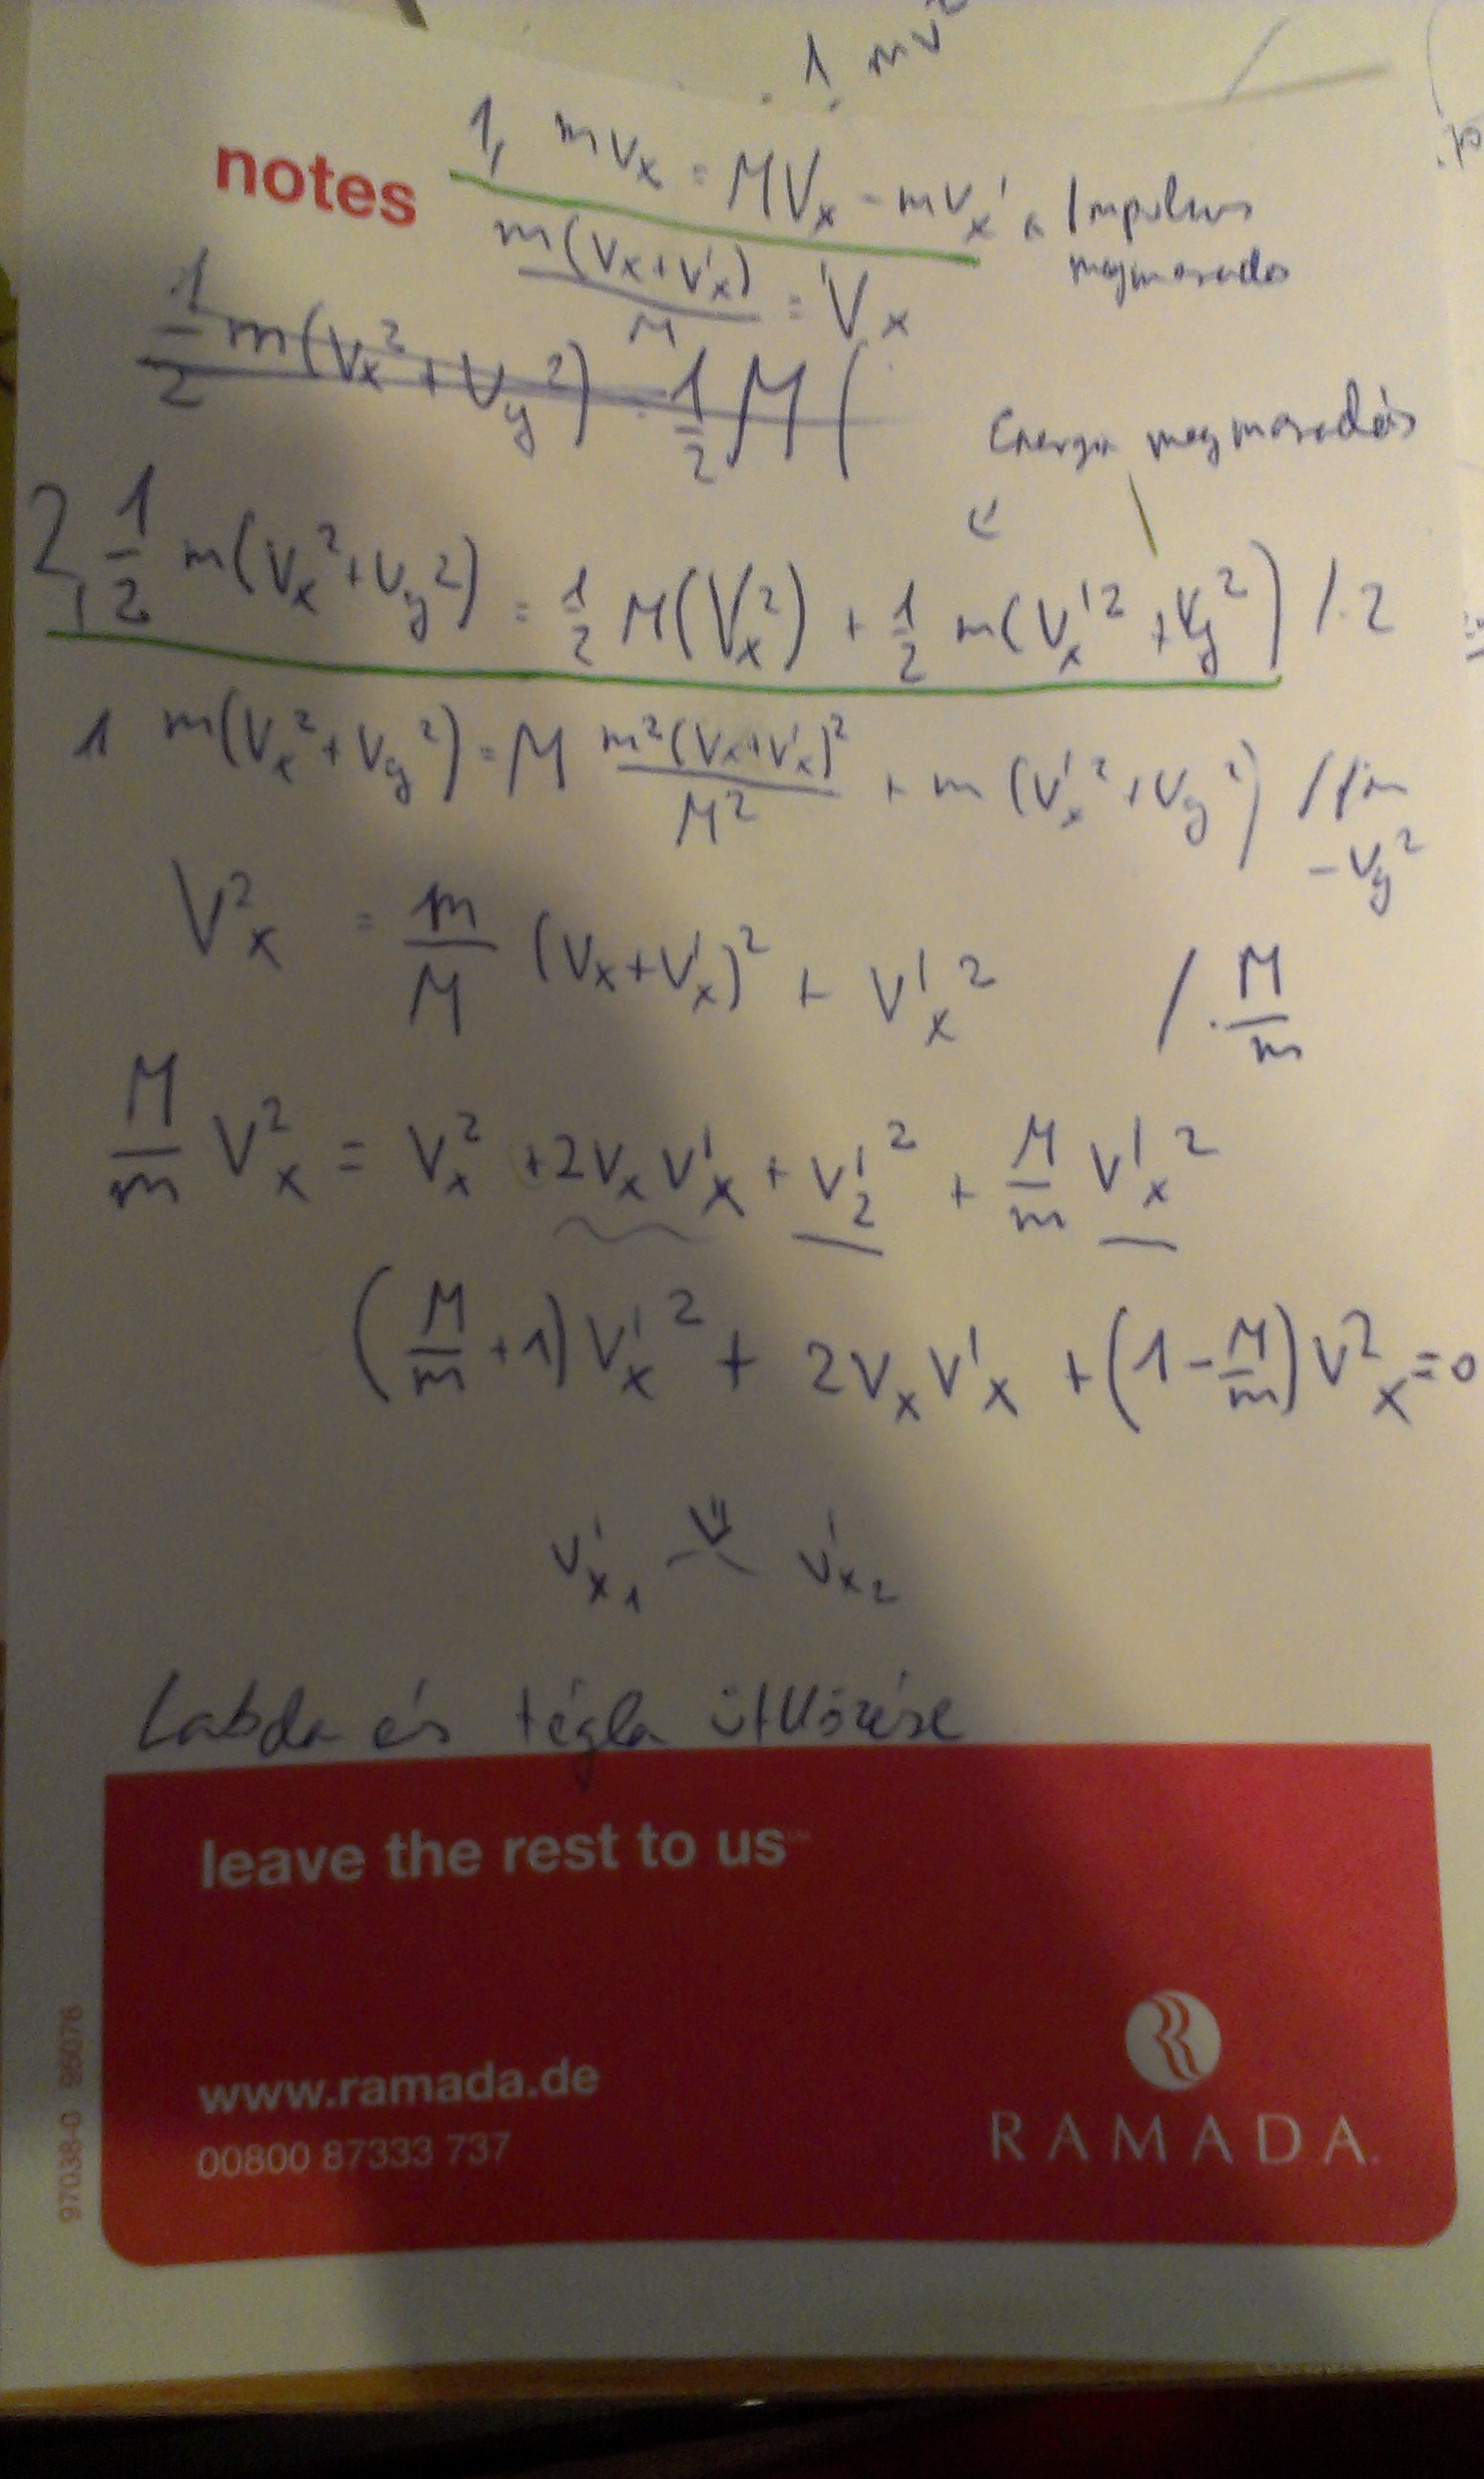 1 mv²
notes
1, mvₓ = MVₓ - mvₓ' ← Impulzus
megmaradás
m(vₓ+vₓ')/M = Vₓ
1/2 m(vₓ²+v_y²) = 1/2 M(
Energia megmaradás
2, 1/2 m(vₓ²+v_y²) = 1/2 M(Vₓ²) + 1/2 m(vₓ'²+v_y²) /·2
1 m(vₓ²+v_y²) = M m²(vₓ+vₓ')²/M² + m(vₓ'²+v_y²) /:m
-v_y²
vₓ² = m/M (vₓ+vₓ')² + vₓ'² /·M/m
M/m vₓ² = vₓ² +2vₓvₓ' + v₂'² + M/m vₓ'²
(M/m +1)vₓ'² + 2vₓvₓ' + (1-M/m)vₓ² = 0
vₓ'₁ vₓ'₂
Labda és tégla ütközése
leave the rest to us
www.ramada.de
00800 87333 737
RAMADA.
97038-0 98076